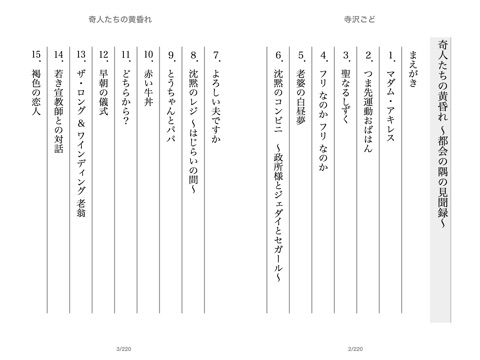 寺沢ごと
奇人たちの黄昏れ ～都会の隅の見聞録～
まえがき
1. マダム・アキレス
2. つま先運動おばはん
3. 聖なるしずく
4. フリ なのか フリ なのか
5. 老婆の白昼夢
6. 沈黙のコンビニ ～政所様とジェダイとセガール～
2/220
奇人たちの黄昏れ
7. よろしい夫ですか
8. 沈黙のレジ ～はじらいの間～
9. とうちゃんとパパ
10. 赤い牛丼
11. どちらから？
12. 早朝の儀式
13. ザ・ロング & ワインディング 老翁
14. 若き宣教師との対話
15. 褐色の恋人
3/220